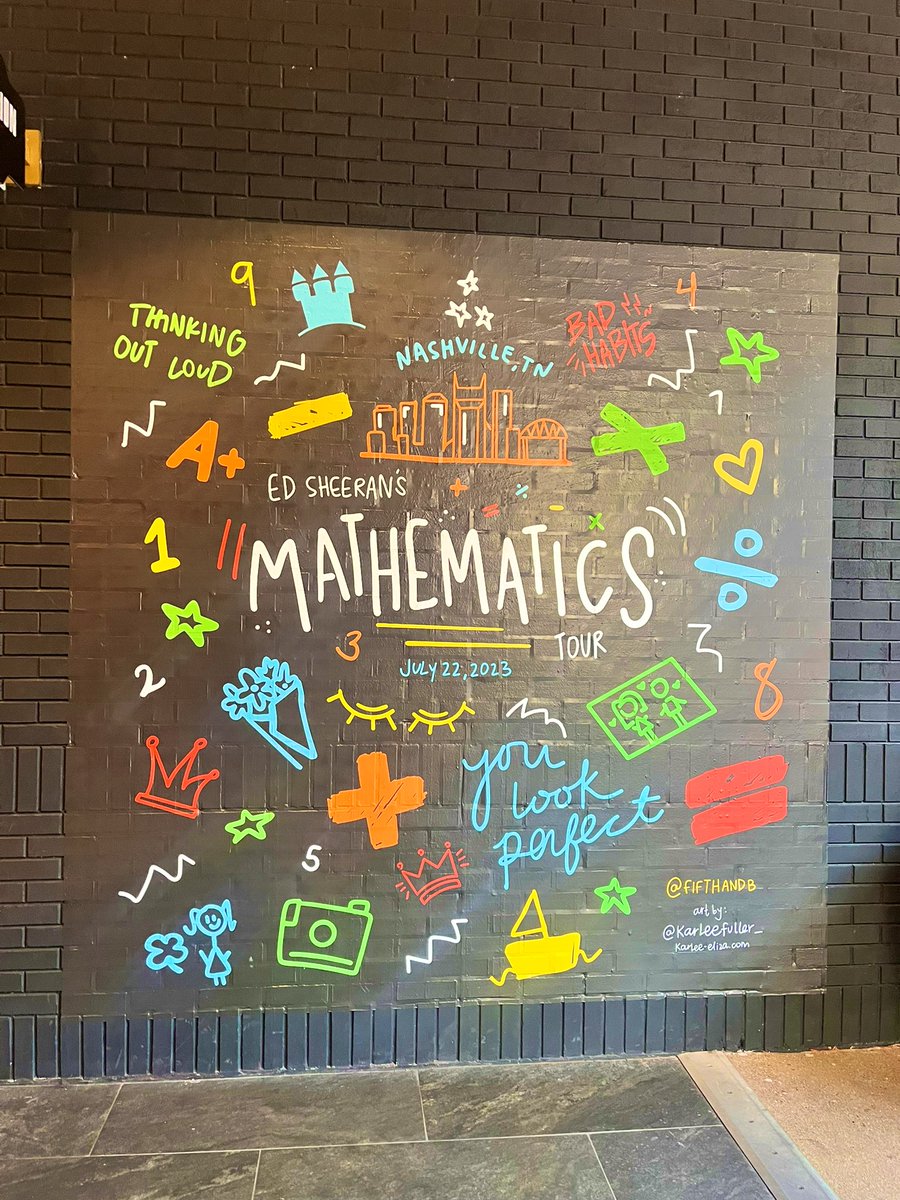 9
4
THINKING
OUT LOUD
NASHVILLE, TN
BAD
HABITS
A+
ED SHEERAN'S
1
MATHEMATICS
TOUR
3
JULY 22, 2023
2
8
you
look
perfect
5
@FIFTHANDB
art by:
@Karleefuller_
Karlee-eliza.com